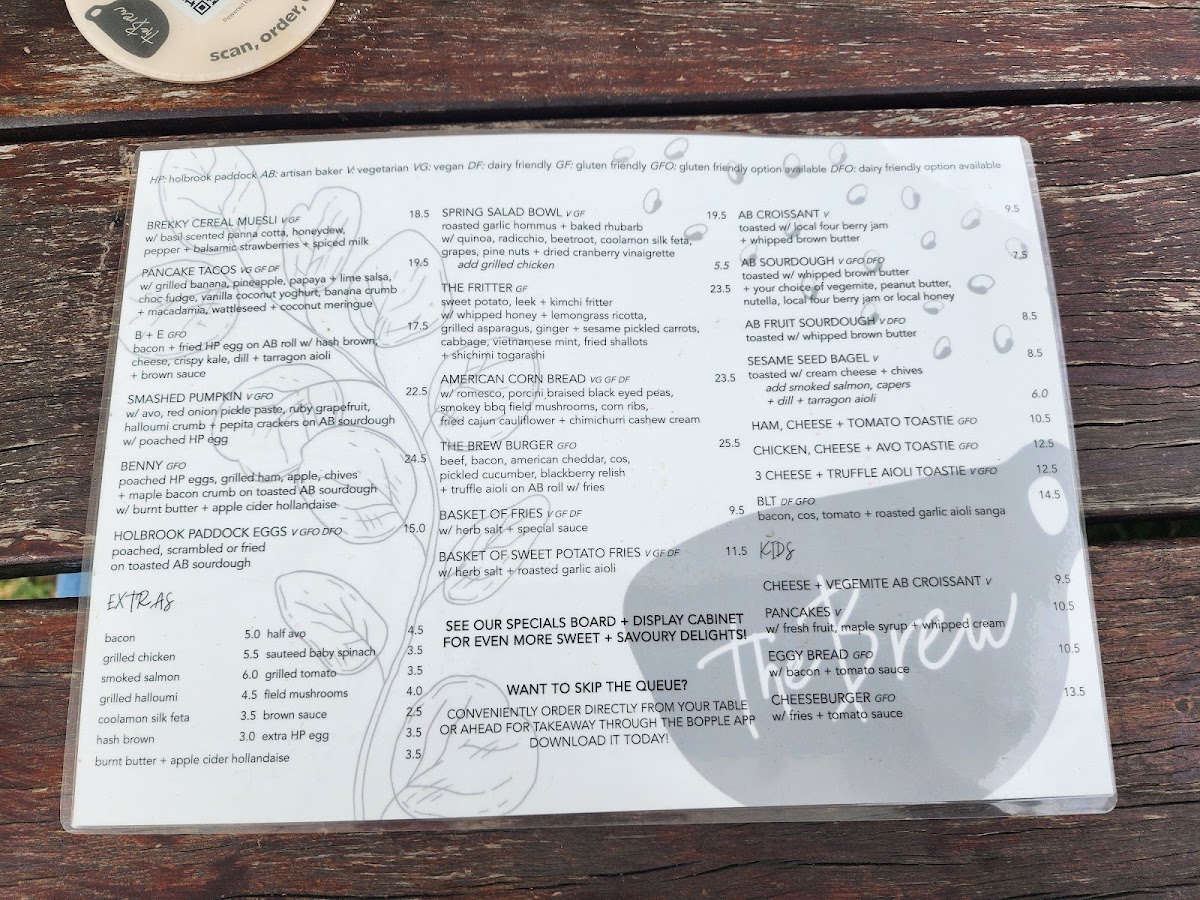 The Brew
Powered by
scan, order,
HP: holbrook paddock AB: artisan baker V: vegetarian VG: vegan DF: dairy friendly GF: gluten friendly GFO: gluten friendly option available DFO: dairy friendly option available
BREKKY CEREAL MUESLI V GF 18.5
w/ basil scented panna cotta, honeydew,
pepper + balsamic strawberries + spiced milk
PANCAKE TACOS VG GF DF 19.5
w/ grilled banana, pineapple, papaya + lime salsa,
choc fudge, vanilla coconut yoghurt, banana crumb
+ macadamia, wattleseed + coconut meringue
B + E GFO 17.5
bacon + fried HP egg on AB roll w/ hash brown,
cheese, crispy kale, dill + tarragon aioli
+ brown sauce
SMASHED PUMPKIN V GFO 22.5
w/ avo, red onion pickle paste, ruby grapefruit,
halloumi crumb + pepita crackers on AB sourdough
w/ poached HP egg
BENNY GFO 24.5
poached HP eggs, grilled ham, apple, chives
+ maple bacon crumb on toasted AB sourdough
w/ burnt butter + apple cider hollandaise
HOLBROOK PADDOCK EGGS V GFO DFO 15.0
poached, scrambled or fried
on toasted AB sourdough
EXTRAS
bacon 5.0
grilled chicken 5.5
smoked salmon 6.0
grilled halloumi 4.5
coolamon silk feta 3.5
hash brown 3.0
burnt butter + apple cider hollandaise 3.5
half avo 4.5
sauteed baby spinach 3.5
grilled tomato 3.5
field mushrooms 4.0
brown sauce 2.5
extra HP egg 3.5
SPRING SALAD BOWL V GF 19.5
roasted garlic hommus + baked rhubarb
w/ quinoa, radicchio, beetroot, coolamon silk feta,
grapes, pine nuts + dried cranberry vinaigrette
add grilled chicken 5.5
THE FRITTER GF 23.5
sweet potato, leek + kimchi fritter
w/ whipped honey + lemongrass ricotta,
grilled asparagus, ginger + sesame pickled carrots,
cabbage, vietnamese mint, fried shallots
+ shichimi togarashi
AMERICAN CORN BREAD VG GF DF 23.5
w/ romesco, porcini braised black eyed peas,
smokey bbq field mushrooms, corn ribs,
fried cajun cauliflower + chimichurri cashew cream
THE BREW BURGER GFO 25.5
beef, bacon, american cheddar, cos,
pickled cucumber, blackberry relish
+ truffle aioli on AB roll w/ fries
BASKET OF FRIES V GF DF 9.5
w/ herb salt + special sauce
BASKET OF SWEET POTATO FRIES V GF DF 11.5
w/ herb salt + roasted garlic aioli
SEE OUR SPECIALS BOARD + DISPLAY CABINET
FOR EVEN MORE SWEET + SAVOURY DELIGHTS!
WANT TO SKIP THE QUEUE?
CONVENIENTLY ORDER DIRECTLY FROM YOUR TABLE
OR AHEAD FOR TAKEAWAY THROUGH THE BOPPLE APP
DOWNLOAD IT TODAY!
AB CROISSANT V 9.5
toasted w/ local four berry jam
+ whipped brown butter
AB SOURDOUGH V GFO DFO 7.5
toasted w/ whipped brown butter
+ your choice of vegemite, peanut butter,
nutella, local four berry jam or local honey
AB FRUIT SOURDOUGH V DFO 8.5
toasted w/ whipped brown butter
SESAME SEED BAGEL V 8.5
toasted w/ cream cheese + chives
add smoked salmon, capers 6.0
+ dill + tarragon aioli
HAM, CHEESE + TOMATO TOASTIE GFO 10.5
CHICKEN, CHEESE + AVO TOASTIE GFO 12.5
3 CHEESE + TRUFFLE AIOLI TOASTIE V GFO 12.5
BLT DF GFO 14.5
bacon, cos, tomato + roasted garlic aioli sanga
KIDS
CHEESE + VEGEMITE AB CROISSANT V 9.5
PANCAKES V 10.5
w/ fresh fruit, maple syrup + whipped cream
EGGY BREAD GFO 10.5
w/ bacon + tomato sauce
CHEESEBURGER GFO 13.5
w/ fries + tomato sauce
The Brew